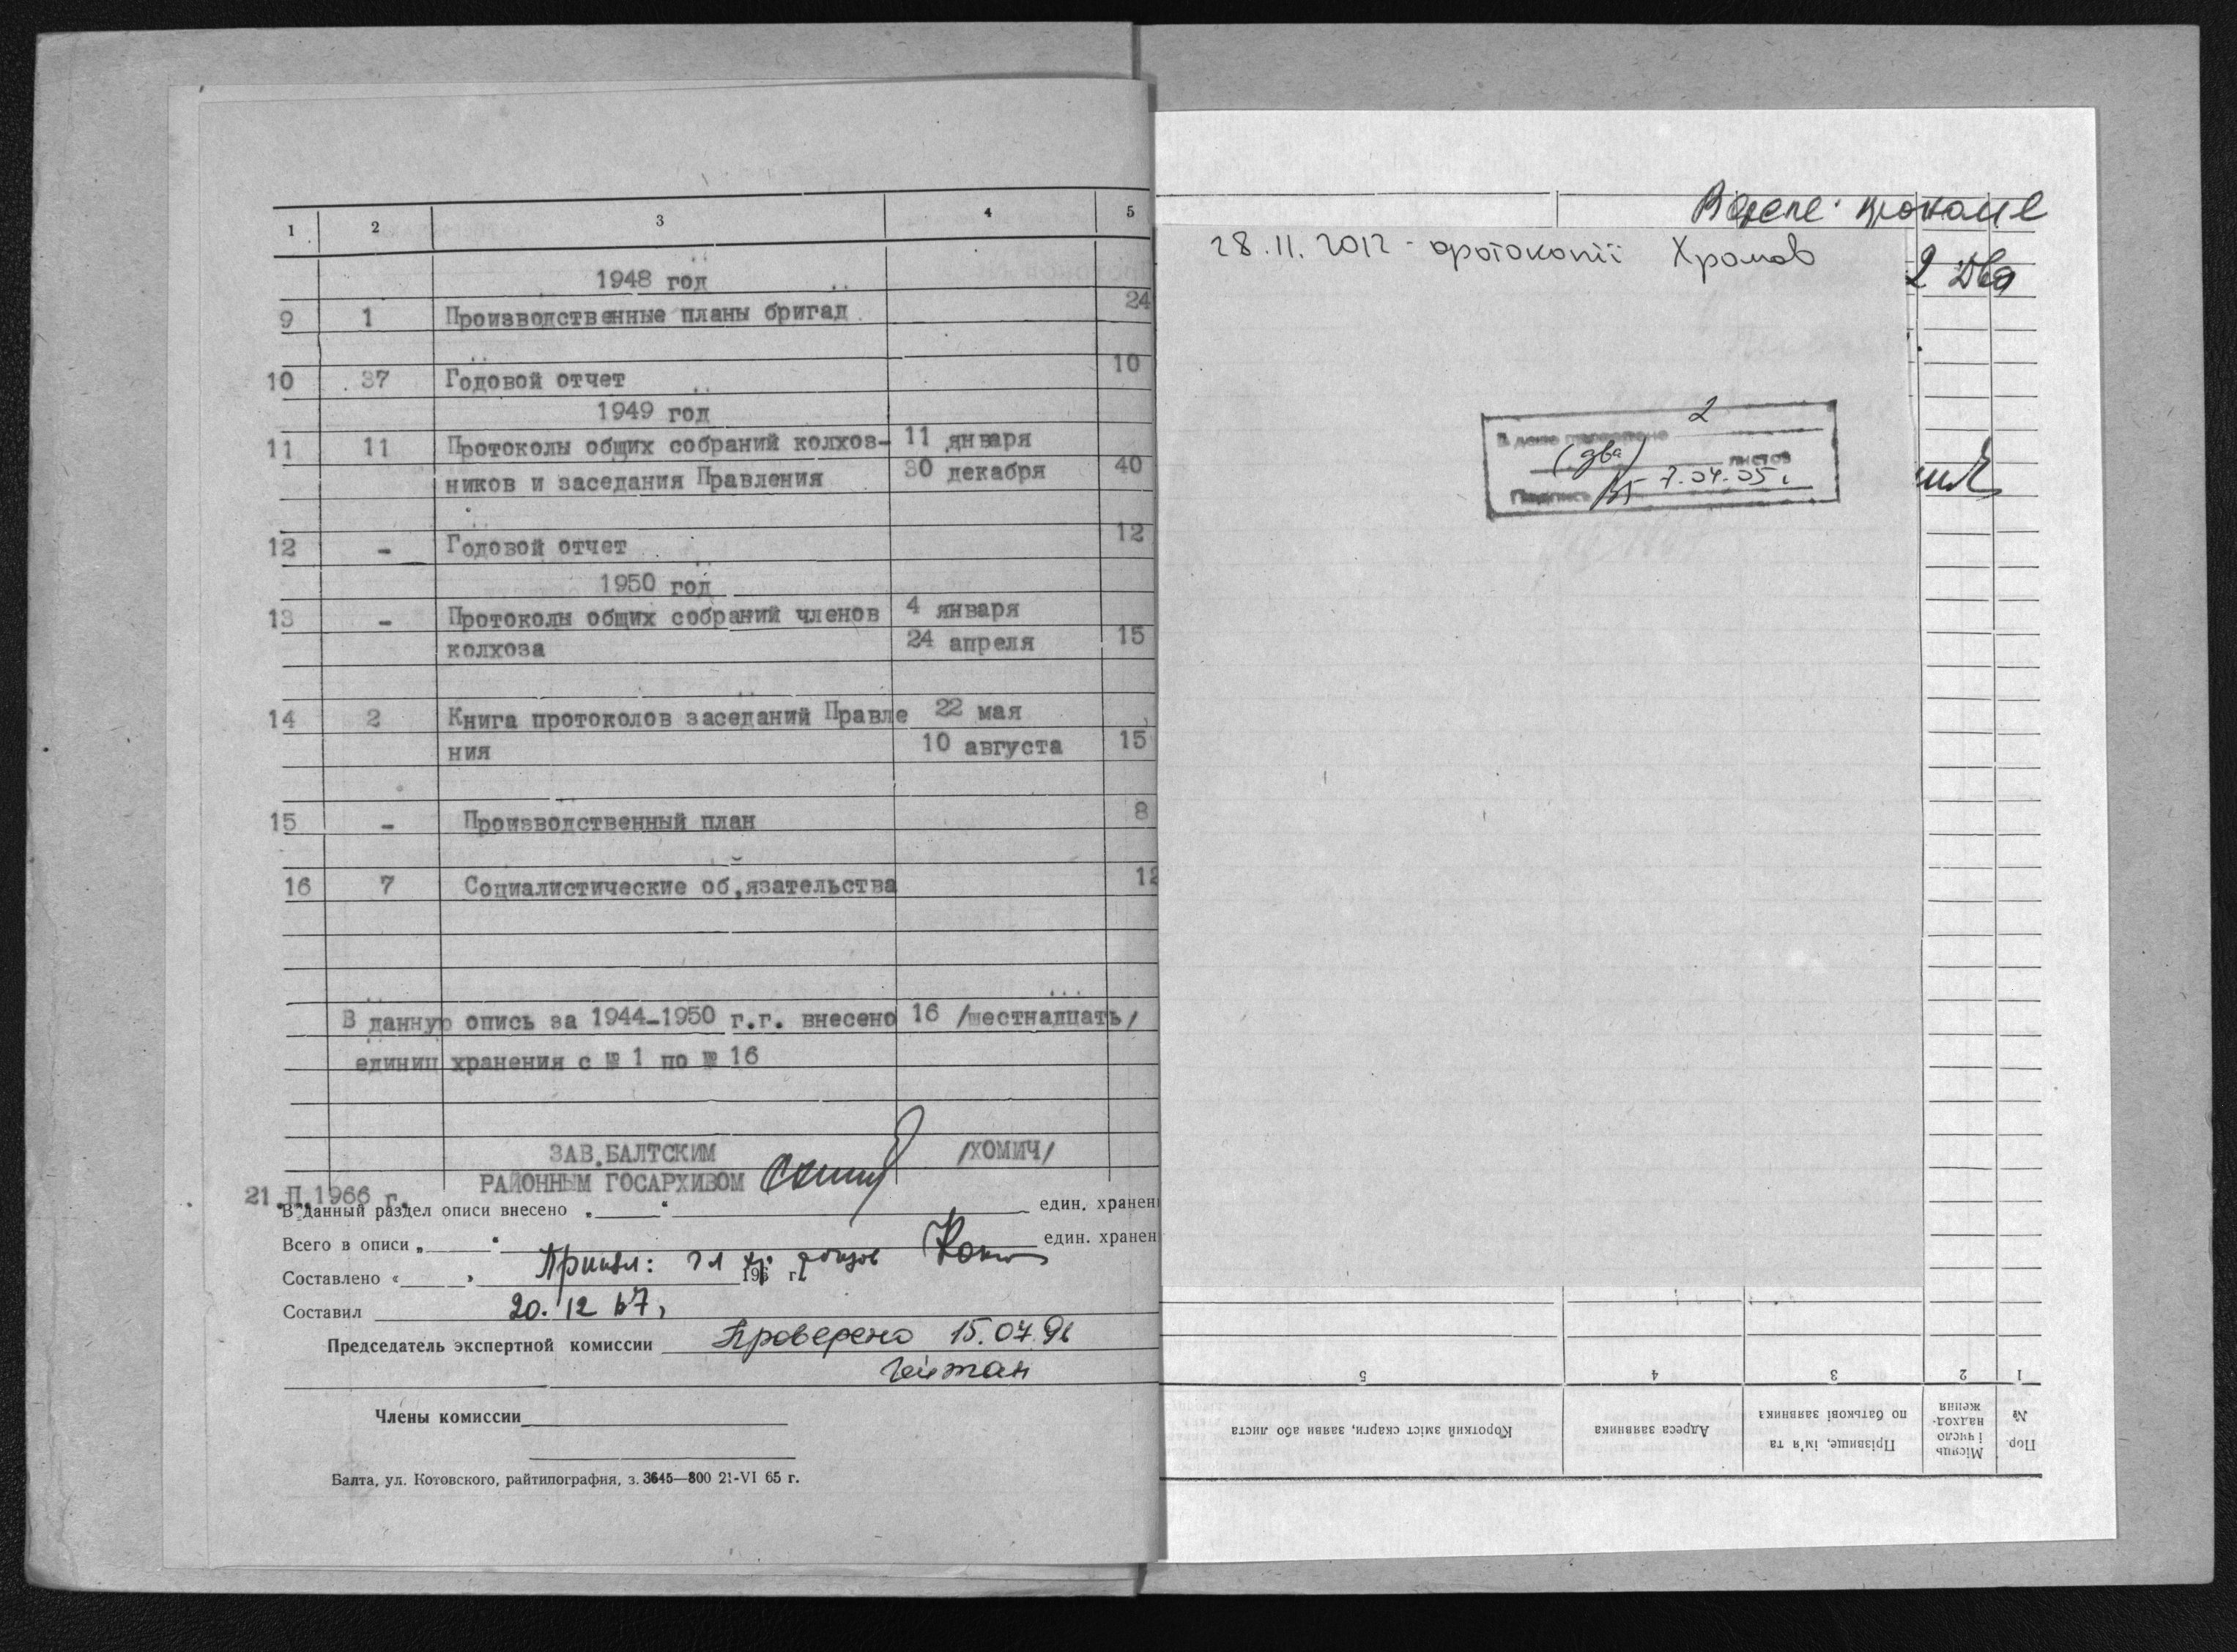 1 2 3 4 5
1948 год
9 1 Производственные планы бригад 24
10 37 Годовой отчет 10
1949 год
11 11 Протоколы общих собраний колхоз- 11 января
ников и заседания Правления 30 декабря 40
12 - Годовой отчет 12
1950 год
13 - Протоколы общих собраний членов 4 января
колхоза 24 апреля 15
14 2 Книга протоколов заседаний Правле 22 мая
ния 10 августа 15
15 - Производственный план 8
16 7 Социалистические об,язательства 12
В данную опись за 1944-1950 г.г. внесено 16 /шестнадцать/
единиц хранения с № 1 по № 16
ЗАВ.БАЛТСКИМ /ХОМИЧ/
РАЙОННЫМ ГОСАРХИВОМ
21.П.1966 г.
В данный раздел описи внесено „ “ един. хранен
Всего в описи „ “ един. хранен
Составлено « » 196 г.
Составил 20.12 67,
Председатель экспертной комиссии Проверено 15.07.96
Члены комиссии
Балта, ул. Котовского, райтипография, з. 3645—800 21-VI 65 г.
28.11.2012 - фотокопії Хромов
2 Два
2
В деле
(два) листов
Подпись 7.04.05г
5 4 3 2 1
Короткий зміст скарги, заяви або листа
Адреса заявника
Прізвище, ім'я та
по батькові заявника
Місяць
і число
надход-
ження
Пор.
№